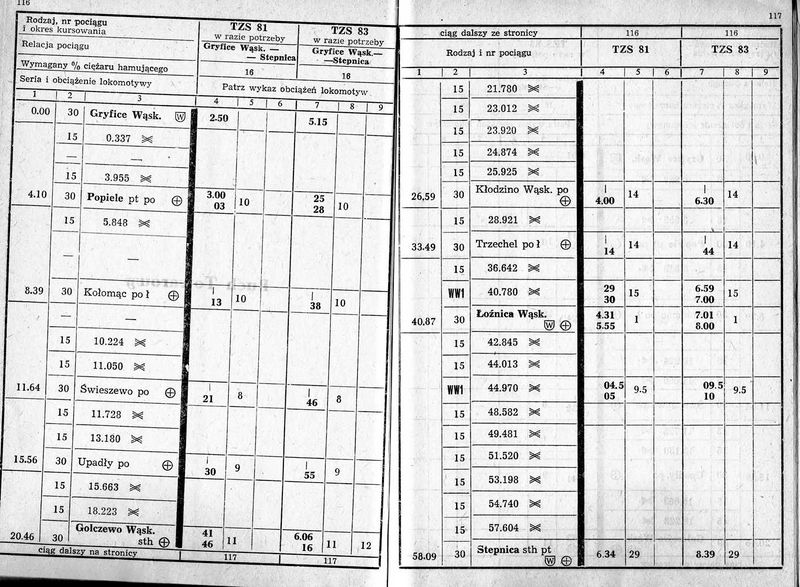 116
Rodzaj, nr pociągu
i okres kursowania
TZS 81
w razie potrzeby
TZS 83
w razie potrzeby
Relacja pociągu
Gryfice Wąsk. —
— Stepnica
Gryfice Wąsk.—
—Stepnica
Wymagany % ciężaru hamującego
16
16
Seria i obciążenie lokomotywy
Patrz wykaz obciążeń lokomotyw
1 2 3 4 5 6 7 8 9
0.00 30 Gryfice Wąsk. W 2.50 5.15
15 0.337
— —
15 3.955
4.10 30 Popiele pt po 3.00 10 25 10
03 28
15 5.848
— —
8.39 30 Kołomąc po ł | 10 | 10
13 38
— —
15 10.224
15 11.050
11.64 30 Świeszewo po | 8 | 8
21 46
15 11.728
15 13.180
15.56 30 Upadły po | 9 | 9
30 55
15 15.663
15 18.223
20.46 30 Golczewo Wąsk. 41 11 6.06 11 12
sth 46 16
ciąg dalszy na stronicy 117 117
117
ciąg dalszy ze stronicy 116 116
Rodzaj i nr pociągu TZS 81 TZS 83
1 2 3 4 5 6 7 8 9
15 21.780
15 23.012
15 23.920
15 24.874
15 25.925
26,59 30 Kłodzino Wąsk. po | 14 | 14
4.00 6.30
15 28.921
33.49 30 Trzechel po ł | 14 | 14
14 44
15 36.642
WW1 40.780 29 15 6.59 15
30 7.00
40,87 30 Łoźnica Wąsk. 4.31 1 7.01 1
W 5.55 8.00
15 42.845
15 44.013
WW1 44.970 04.5 9.5 09.5 9.5
05 10
15 48.582
15 49.481
15 51.520
15 53.198
15 54.740
15 57.604
58.09 30 Stepnica sth pt 6.34 29 8.39 29
W